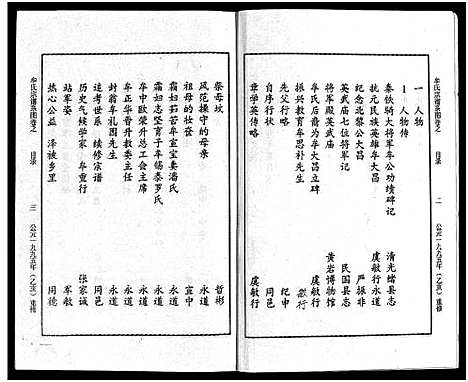 牟氏宗谱系图卷之　目录　二　公元一九九五年（乙亥）重修
一　人物
1　人物传
秦钦骑大将军牟公功绩碑记　清光绪县志
抗元民族英雄牟大昌　虞敏行 永道
纪念北黎公大昌　严振非
英武庙七位将军记　民国县志
将军殿英武庙　黄岩博物馆
牟氏后裔为牟大昌立碑　虞敏行
振兴教育牟思朴先生
先父行略　纪申
自序行状　同邑
章学英传略　虞敏行
祭母坟　哲彬
风范操守的母亲　永道
祖母的妆奁　宜中
霜妇茹苦牟宣宝妻潘氏　永道
霜妇志坚育子牟锡泰罗氏　永道
牟中欧荣升总工会主席　永道
牟正华晋升教委主任　永道
封翁牟礼园先生　永道
追考世系　续修宗谱　同邑
历史气候学家　牟重行　张家诚
站军姿　军敏
热心公益　泽被乡里　同德
牟氏宗谱系图卷之　目录　三　公元一九九五年（乙亥）重修